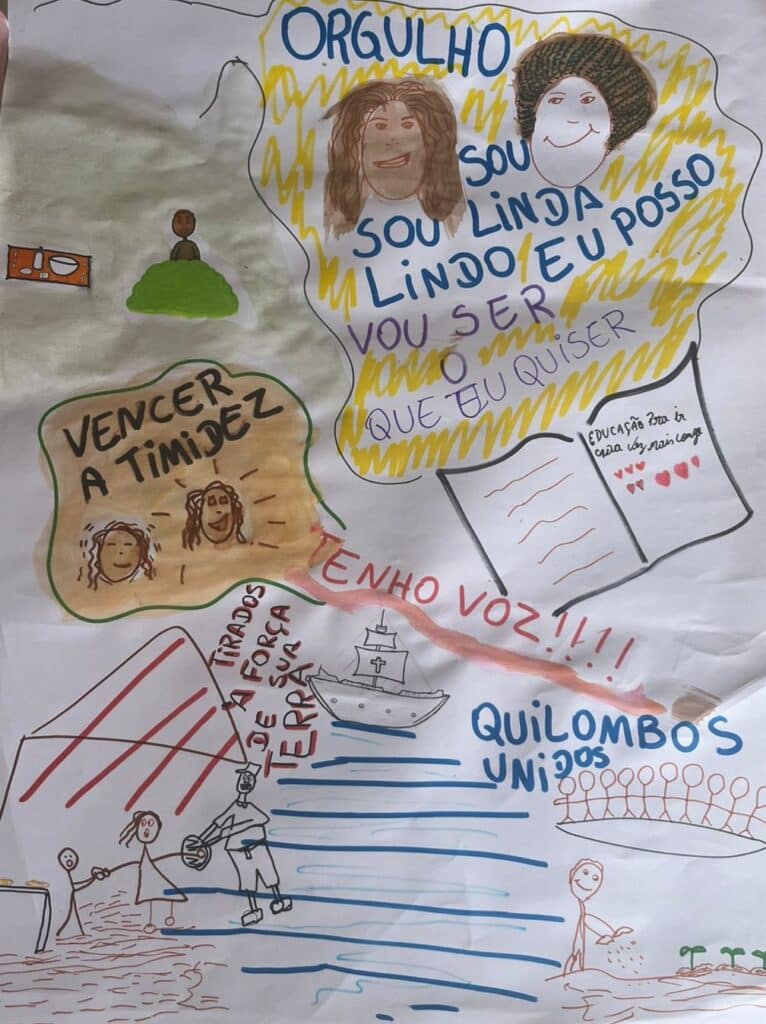 ORGULHO
SOU
SOU LINDA
LINDO EU POSSO
VOU SER
O
QUE EU QUISER
VENCER
A TIMIDEZ
EDUCAÇÃO Pra ir
cada vez mais longe
TENHO VOZ!!!!
TIRADOS
À FORÇA
DE SUA
TERRA
QUILOMBOS
UNIDOS